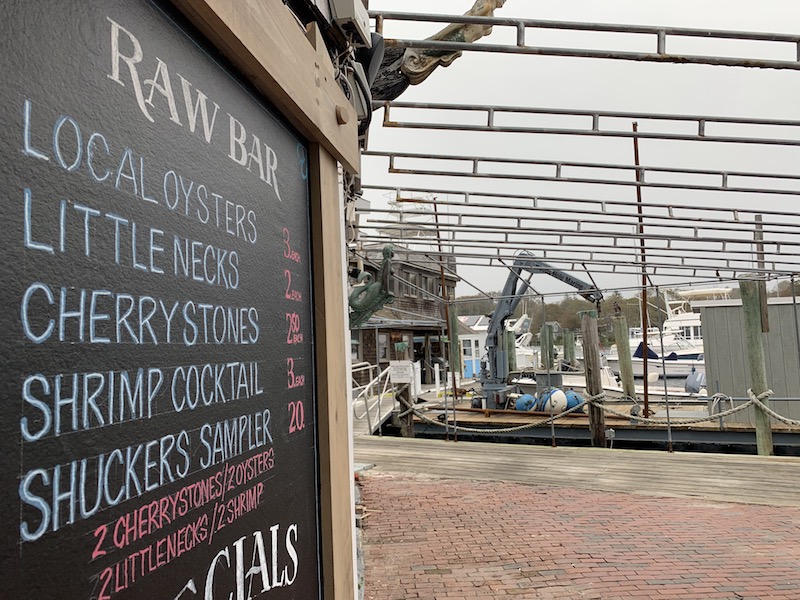 RAW BAR
LOCAL OYSTERS 3.EACH
LITTLE NECKS 2.EACH
CHERRYSTONES 250 EACH
SHRIMP COCKTAIL 3.EACH
SHUCKERS SAMPLER 20.
2 CHERRYSTONES/2 OYSTERS
2 LITTLENECKS/2 SHRIMP